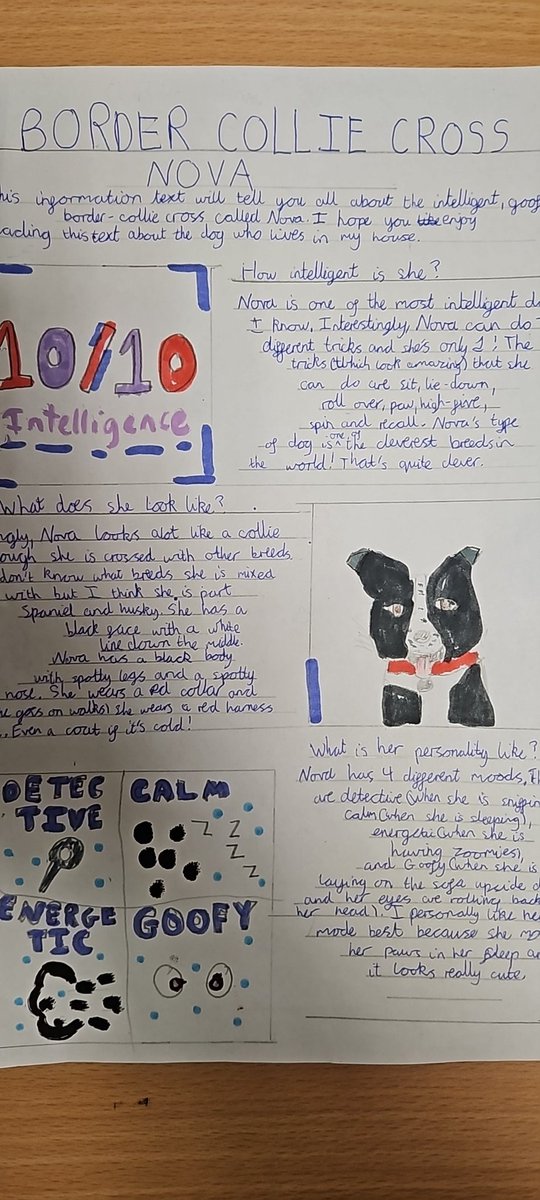 BORDER COLLIE CROSS
NOVA
his information text will tell you all about the intelligent, goof
border-collie cross called Nova. I hope you enjoy
eading this text about the dog who lives in my house.
10/10
Intelligence
How intelligent is she?
Nova is one of the most intelligent d
I know. Interestingly, Nova can do
different tricks and she's only 1! The
tricks (Which look amazing) that she
can do are sit, lie-down,
roll over, paw, high-five,
spin and recall. Nova's type
of dog is one of the cleverest breeds in
the world! That's quite clever.
What does she look like?
ngly, Nova looks alot like a collie
ough she is crossed with other breeds.
don't know what breeds she is mixed
with but I think she is part
Spaniel and husky. She has a
black face with a white
line down the middle.
Nova has a black body
with spotty legs and a spotty
nose. She wears a red collar and
he goes on walks) she wears a red harness
... Even a coat if it's cold!
DETEC
TIVE
CALM
Z Z
Z
Z
ENERGE
TIC
GOOFY
What is her personality like?
Nova has 4 different moods. Th
are detective (when she is sniffin
calm (when she is sleeping),
energetic (when she is
having zoomies),
and Goofy (when she is
laying on the sofa upside d
and her eyes are rolling back
her head). I personally like he
mode best because she mo
her paws in her sleep an
it looks really cute.